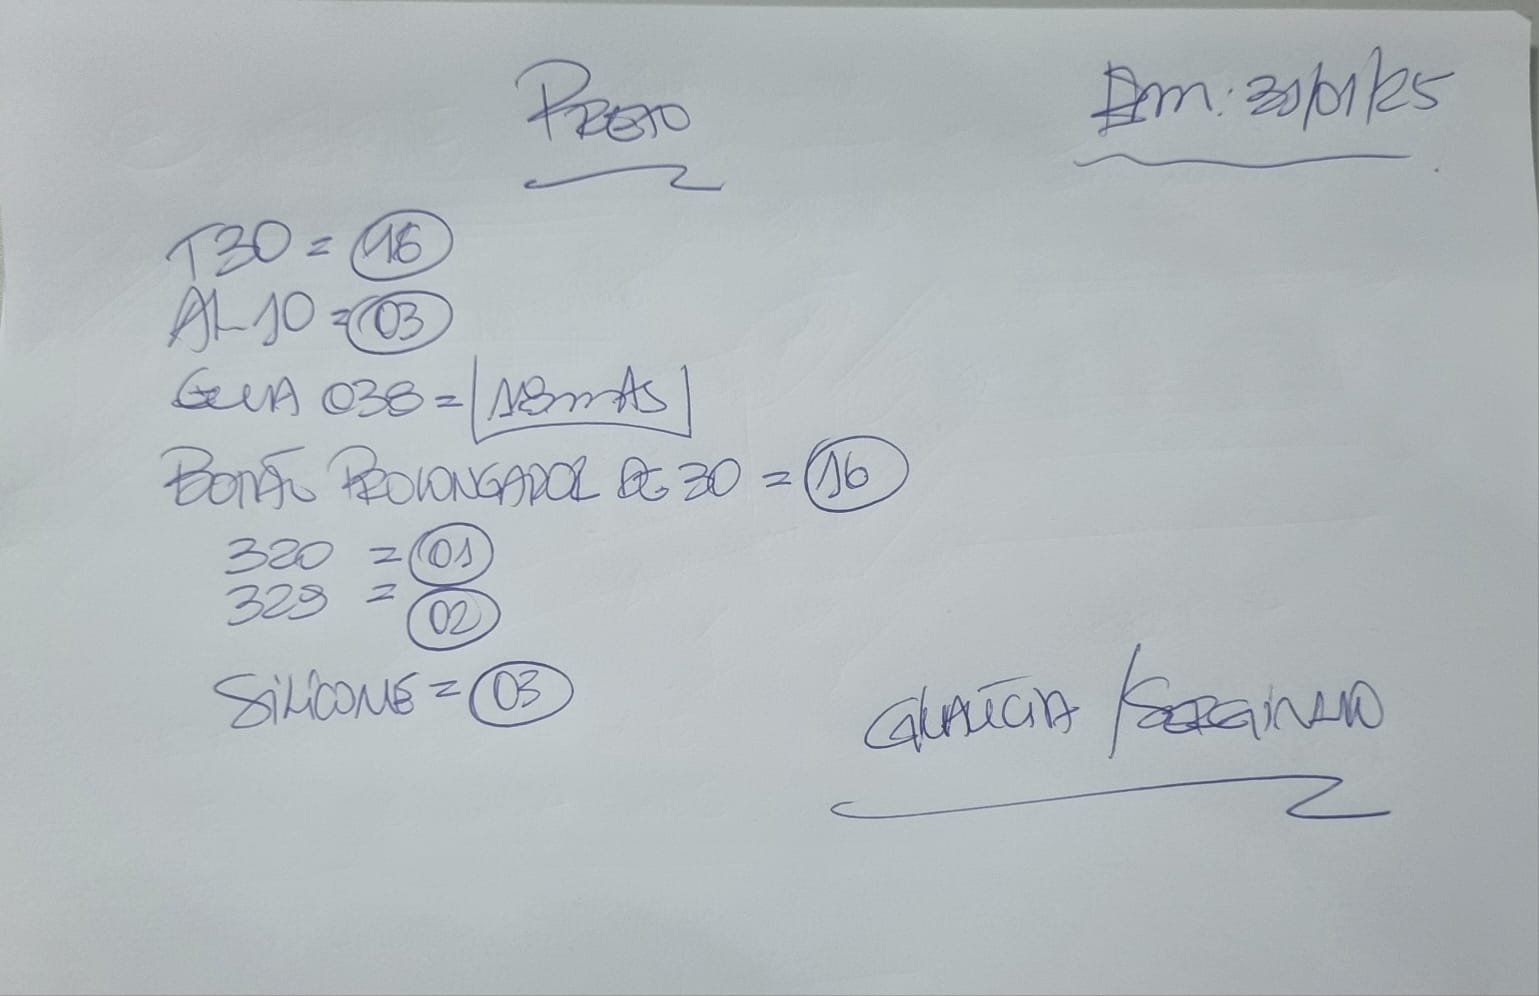 PRETO
Em: 31/01/25
T30 = 16
AL 10 = 03
GUIA 038 = 18mts
BOTÃO PROLONGADOR DE 30 = 16
320 = 01
329 = 02
SILICONE = 03
GLAUCIA / SERGINHO